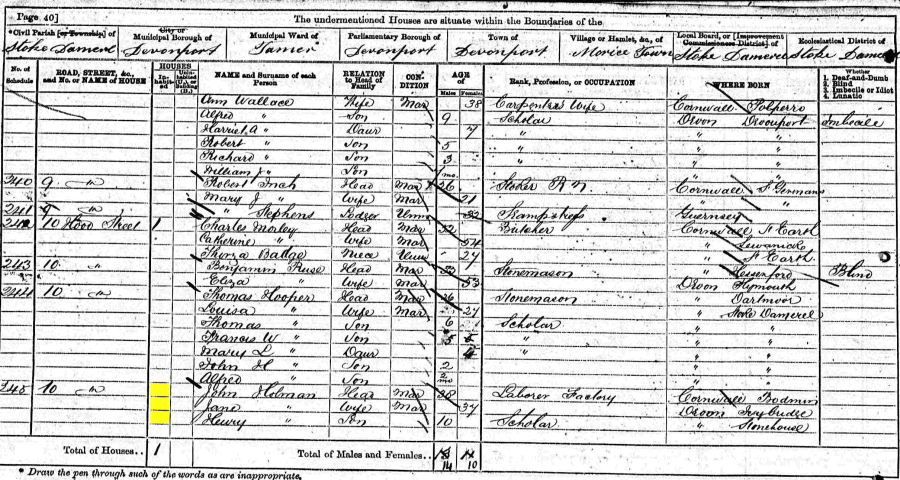 Page 40]
The undermentioned Houses are situate within the Boundaries of the
*Civil Parish [or Township] of Stoke Damerel
City or Municipal Borough of Devonport
Municipal Ward of Tamar
Parliamentary Borough of Devonport
Town of Devonport
Village or Hamlet, &c., of Morice Town
Local Board, or [Improvement Commissioners District] of Stoke Damerel
Ecclesiastical District of Stoke Damerel
No. of Schedule
ROAD, STREET, &c., and No. or NAME of HOUSE
HOUSES
In-habit-ed
Unin-habited (U.), or Building (B.)
NAME and Surname of each Person
RELATION to Head of Family
CON-DITION
AGE of
Males
Females
Rank, Profession, or OCCUPATION
WHERE BORN
Whether
1. Deaf-and-Dumb
2. Blind
3. Imbecile or Idiot
4. Lunatic
Ann Wallace Wife Mar 38 Carpenters Wife Cornwall Polperro
Alfred " Son 9 Scholar Devon Devonport Imbecile
Harriet A " Daur 7 " " "
Robert " Son 5 " "
Richard " Son 3 " "
William J " Son mo " "
240 9 Robert Head Mar 26 Stoker R N Cornwall St Germans
Mary J " Wife Mar 21 " "
241 9 " Stephens Lodger Unm 32 Guernsey
242 10 Hood Street 1 Charles Morley Head Mar 52 Butcher Cornwall St Earth
Catherine " Wife Mar 54 " Lewanick
Thirza Niece Unm 27 " St Earth
243 10 " Benjamin Ruse Head Mar Stonemason " Hessenford Blind
Eliza " Wife Mar 53 Devon Plymouth
244 10 " Thomas Hooper Head Mar 26 Stonemason " Dartmoor
Louisa " Wife Mar 27 " Stoke Damerel
Thomas " Son 6 Scholar " "
Francis W " Son 5 " " "
Mary L " Daur 4 " "
John H " Son 2 " "
Alfred " Son 2 mo " "
245 10 " John Holman Head Mar 38 Laborer Factory Cornwall Bodmin
Jane " Wife Mar 37 Devon Ivybridge
Henry " Son 10 Scholar " Stonehouse
Total of Houses.. 1
Total of Males and Females.. 14 10
* Draw the pen through such of the words as are inappropriate.